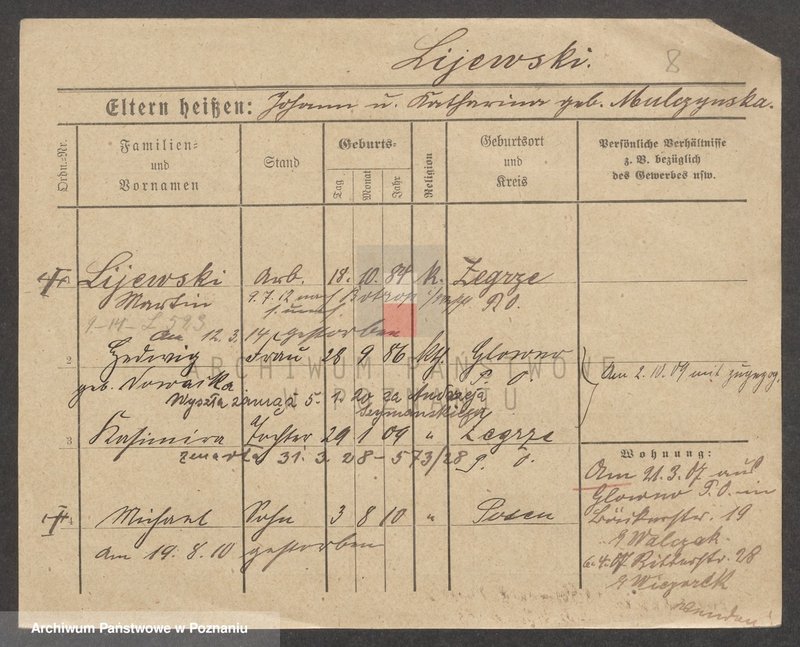 Lijewski.
8
Eltern heißen: Johann u. Katharina geb. Mulczynska.
Ordn.-Nr.
Familien-
und
Vornamen
Stand
Geburts-
Tag
Monat
Jahr
Religion
Geburtsort
und
Kreis
Persönliche Verhältnisse
z. B. bezüglich
des Gewerbes usw.
Lijewski Arb. 18. 10. 84 k. Zegrze
Martin 9. 7. 12 nach P. O.
9-14-L 593
am 12. 3. 14 gestorben
2 Hedwig Frau 28 9 86 kth Glowno
P. O.
Am 2. 10. 09 mit zugezog.
geb. Nowacka
Wyszła zamąż 5. 1. 20 za Andrzeja
Szymańskiego
3 Kasimira Tochter 29 1 09 " Zegrze
P. O.
zmarła 31. 3. 28 - 573/28
Michael Sohn 3 8 10 " Posen
am 19. 8. 10 gestorben
Wohnung:
Am 21. 3. 07 aus
Glowno P. O. in
Bäckerstr. 19
Walczak
Ritterstr. 28
ARCHIWUM PAŃSTWOWE
W POZNANIU
Archiwum Państwowe w Poznaniu